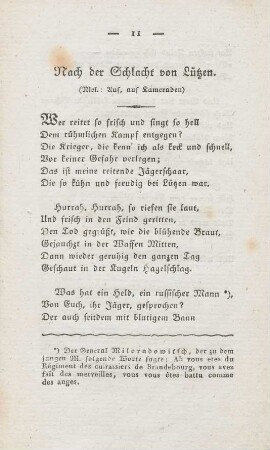 — 11 —
Nach der Schlacht von Lützen.
(Mel.: Auf, auf Kameraden)
Wer reitet so frisch und singt so hell
Dem rühmlichen Kampf entgegen?
Die Krieger, die kenn' ich als keck und schnell,
Vor keiner Gefahr verlegen;
Das ist meine reitende Jägerschaar,
Die so kühn und freudig bei Lützen war.
Hurrah, Hurrah, so riefen sie laut,
Und frisch in den Feind geritten,
Den Tod gegrüßt, wie die blühende Braut,
Gejauchzt in der Waffen Mitten,
Dann wieder geruhig den ganzen Tag
Geschaut in der Kugeln Hagelschlag.
Was hat ein Held, ein russischer Mann *),
Von Euch, ihr Jäger, gesprochen?
Der auch seitdem mit blutigem Bann
*) Der General Miloradowitsch, der zu dem
jungen M. folgende Worte sagte: Ah vous etes du
Régiment des cuirassiers de Brandebourg, vous avez
fait des merveilles, vous vous êtes battu comme
des anges.